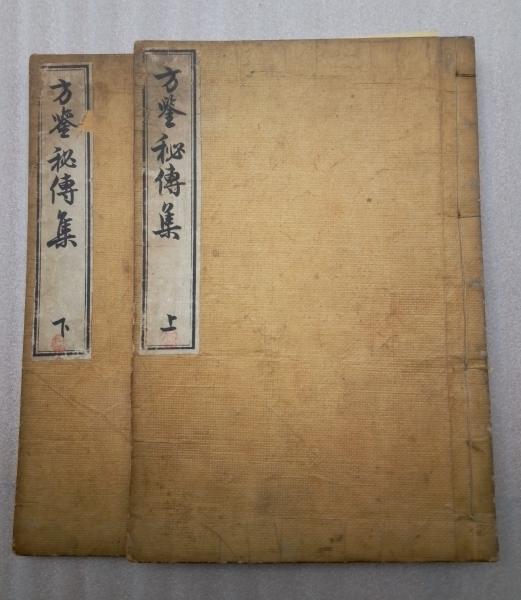 方鑒秘傳集
上
方鑒秘傳集
下